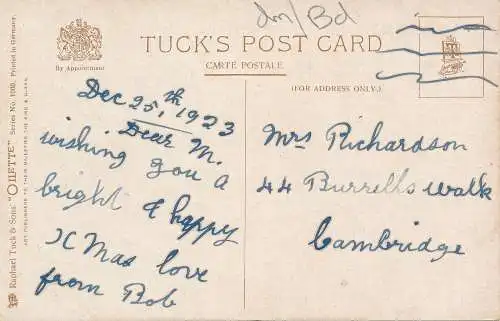 dm/Bd
By Appointment
TUCK'S POST CARD
CARTE POSTALE
(FOR ADDRESS ONLY.)
Raphael Tuck & Sons' "OILETTE" Series No. 1030. Printed in Germany.
ART PUBLISHERS TO THEIR MAJESTIES THE KING & QUEEN.
Dec 25th, 1923
Dear M.
wishing you a
bright & happy
X Mas love
from Bob
Mrs Richardson
44 Burrells walk
Cambridge